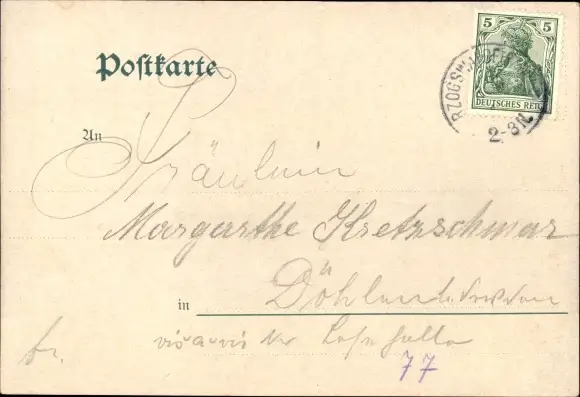 Postkarte
5 5
DEUTSCHES REICH
RZOGSW
2-3N.
An
Fräulein
Margarthe Kretzschmar
in Döhlen b. Dresden
vis a vis der
fr.
77